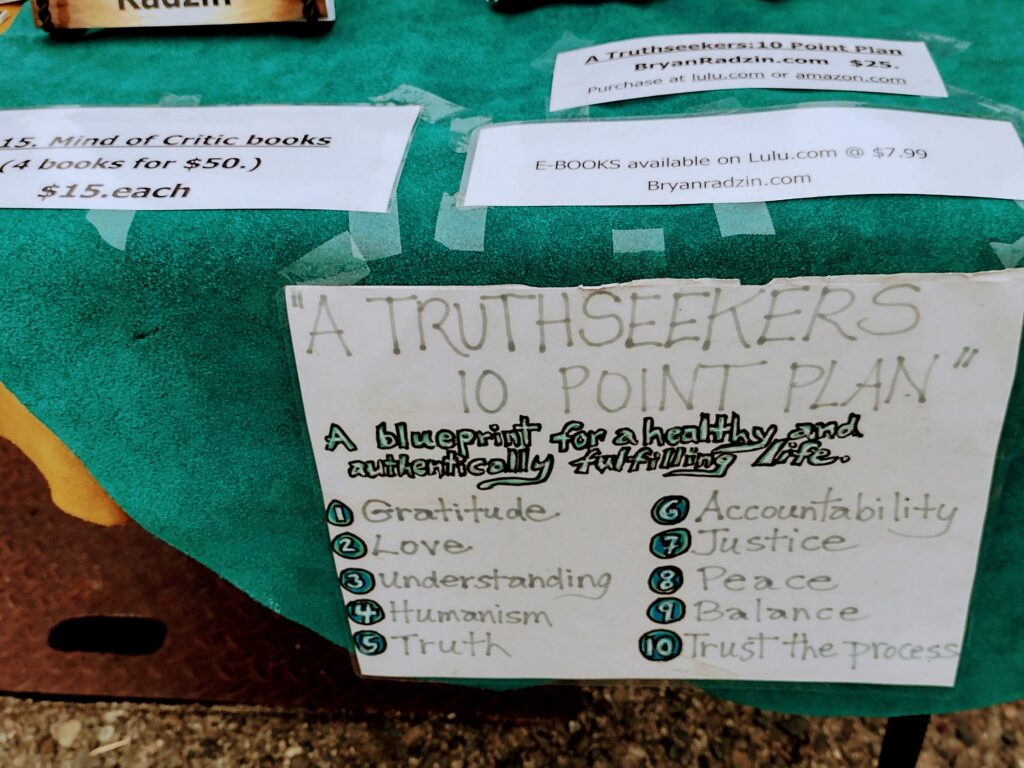 Radzin
A Truthseekers:10 Point Plan
BryanRadzin.com $25.
Purchase at lulu.com or amazon.com
15. Mind of Critic books
(4 books for $50.)
$15.each
E-BOOKS available on Lulu.com @ $7.99
Bryanradzin.com
"A TRUTHSEEKERS
10 POINT PLAN"
A blueprint for a healthy and
authentically fulfilling life.
1 Gratitude
2 Love
3 understanding
4 Humanism
5 Truth
6 Accountability
7 Justice
8 Peace
9 Balance
10 Trust the process